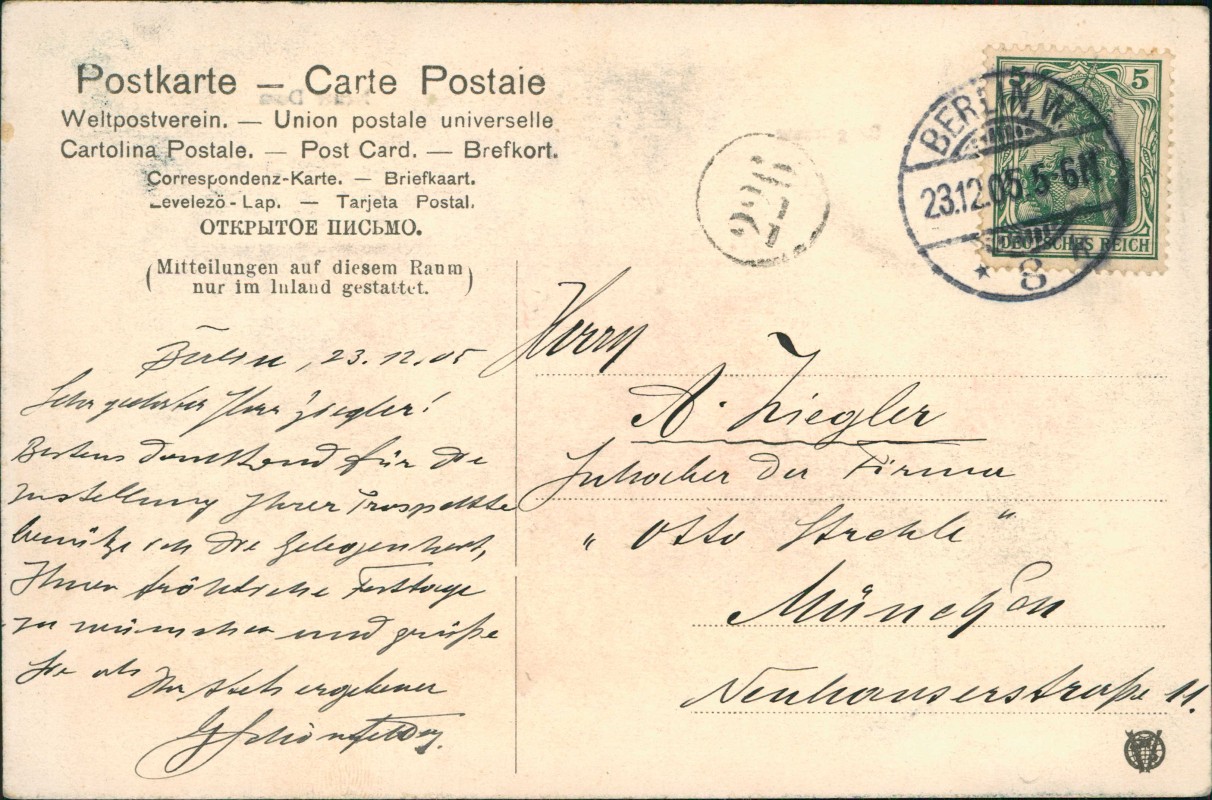 Postkarte — Carte Postale
Weltpostverein. — Union postale universelle
Cartolina Postale. — Post Card. — Brefkort.
Correspondenz-Karte. — Briefkaart.
Levelezö-Lap. — Tarjeta Postal.
ОТКРЫТОЕ ПИСЬМО.
(Mitteilungen auf diesem Raum
nur im Inland gestattet.)
226
5 5
DEUTSCHES REICH
BERLIN, W.
23.12.05 5-6N
* 8
Berlin, 23.12.05
Sehr geehrter Herr Ziegler!
Bestens dankend für die
Zustellung Ihrer Prospekte
benütze ich die Gelegenheit,
Ihnen fröhliche Festtage
zu wünschen und grüße
Sie als
Ihr stets ergebener
Herrn
A. Ziegler
Inhaber der Firma
"Otto Strehle"
München
Neuhauserstraße 11.